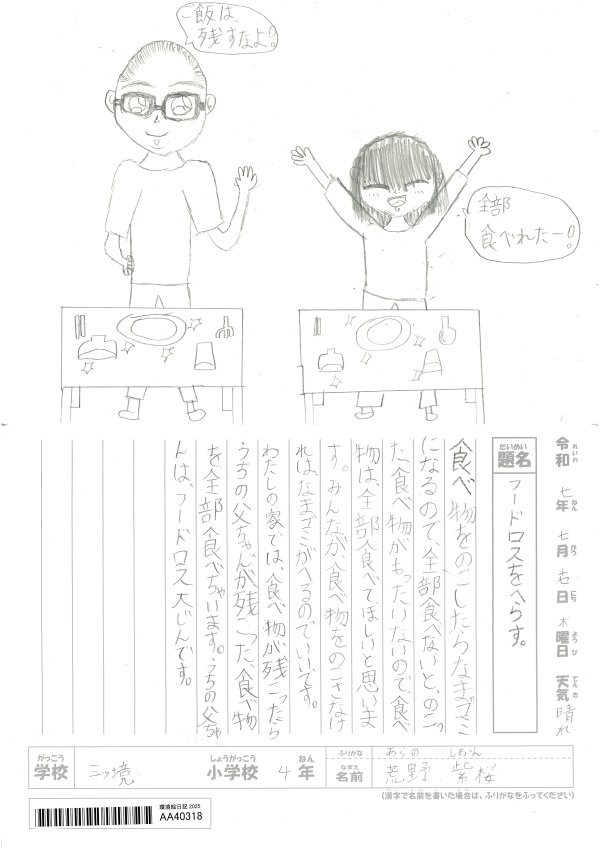 ご飯は、
残すなよ!
全部
食べれたー!
令和 七年 七月 七日 木曜日 天気 晴れ
れいわ ねん がつ にち ようび てんき
だいめい
題名 フードロスをへらす。
食べ物をのこしたらなまごみ
になるので、全部食べないと、のこっ
た食べ物がもったいないので、食べ
物は、全部食べてほしいと思いま
す。みんなが食べ物をのこさなけ
ればなまごみがへるのでいいです。
わたしの家では、食べ物が残こったら
うちの父ちゃんが残こった、食べ物
を全部食べちゃいます。うちの父ちゃ
んは、フードロス大じんです。
がっこう しょうがっこう ねん ふりがな あらの しおん
学校 三ツ境 小学校 4年 なまえ 名前 荒野 紫桜
(漢字で名前を書いた場合は、ふりがなをふってください)
環境絵日記 2025
AA40318